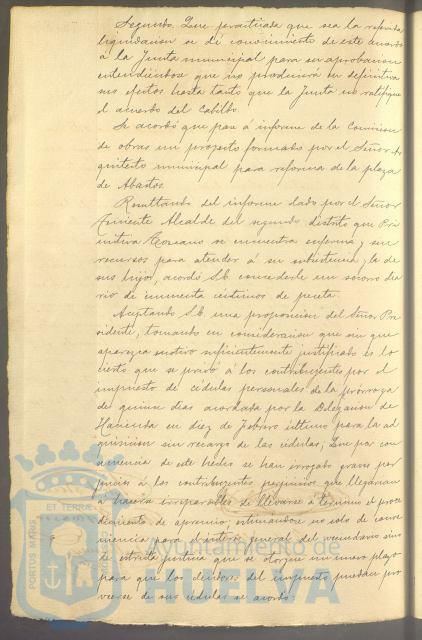 Segundo. Que practicada que sea la referida
liquidacion se dé conocimiento de este acuerdo
á la Junta municipal para su aprobacion
entendiéndose que no producirá en definitiva
sus efectos hasta tanto que la Junta no ratifique
el acuerdo del Cabildo.
Se acordó que pase á informe de la Comision
de obras un proyecto formado por el Señor Ar
quitecto municipal para reforma de la plaza
de Abastos.
Resultando del informe dado por el Señor
Teniente Alcalde del segundo distrito que Pri
mitiva Toscano se encuentra enferma y sin
recursos para atender á su subsistencia y la de
sus hijos, acordó S.E. concederle un socorro dia
rio de cincuenta céntimos de peseta.
Aceptando S.E. una proposicion del Señor Pre
sidente, tomando en consideracion que sin que
aparezca motivo suficientemente justificado es lo
cierto que se privó á los contribuyentes por el
impuesto de cédulas personales de la prórroga
de quince dias acordada por la Delegacion de
Hacienda en diez de Febrero último para la ad
quisicion sin recargo de las cédulas; Que por con
secuencia de este hecho se han irrogado graves per
juicios á los contribuyentes, perjuicios que llegarian
á hacerse irreparables de llevarse á término el proce
dimiento de apremio, estimándose no solo de conve
niencia para el interés general del vecindario sino
de estricta justicia que se otorgue un nuevo plazo
para que los deudores del impuesto puedan pro
veerse de sus cédulas se acordó
ET TERRA
PORTUS MARIS
Ayuntamiento de
HUELVA